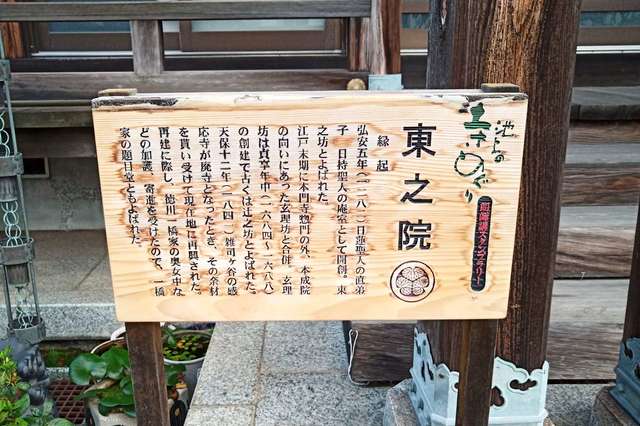 池上の
寺めぐり
御朱印スタンプラリー
東之院
縁起
弘安五年(一二八二)日蓮聖人の直弟
子 日持聖人の庵室として開創。東
之坊とよばれた。
江戸末期に本門寺惣門の外、本成院
の向いにあった玄理坊と合併。玄理
坊は貞享年中(一六八四〜一六八八)
の創建で古くは辻之坊とよばれた。
天保十二年(一八四一)雑司ヶ谷の感
応寺が廃寺となったとき、その余材
を貰い受けて現在地に再興された。
再建に際し、徳川一橋家の奥女中な
どの加護、寄進を受けたので、一橋
家の題目堂ともよばれた。